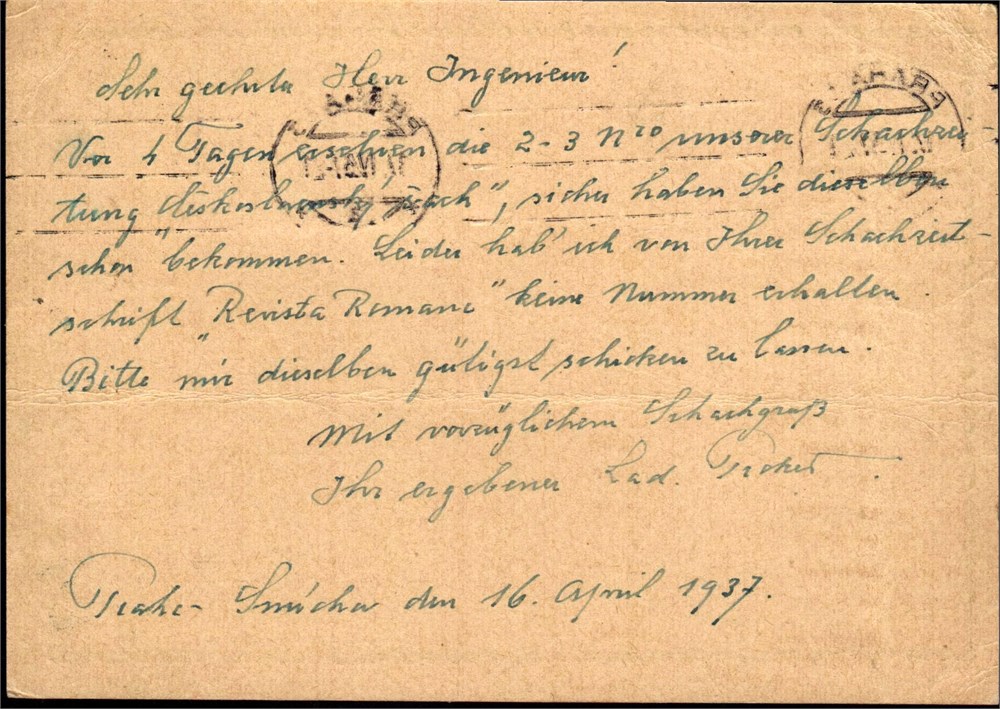 Sehr geehrter Herr Ingenieur!
Vor 4 Tagen erschien die 2-3 Nro unserer Schachzei-
tung „Československý Šach“, sicher haben Sie dieselben
schon bekommen. Leider hab' ich von Ihrer Schachzeit-
schrift „Revista Romana“ keine Nummer erhalten.
Bitte mir dieselben gütigst schicken zu lassen.
Mit vorzüglichem Schachgruß
Ihr ergebener Lad.
Praha- Smíchov den 16. April 1937.
PRAHA
PRAHA